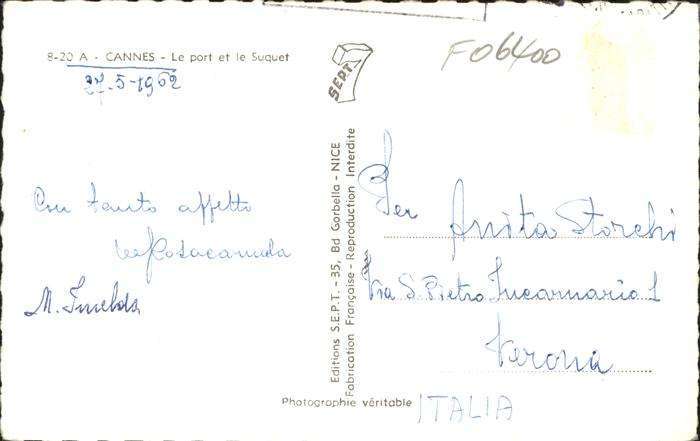 8-20 A - CANNES - Le port et le Suquet
27-5-1962
Con tanto affetto
M. Imelda
SEPT 7
Editions S.E.P.T. - 35, Bd Gorbella - NICE
Fabrication Française - Reproduction Interdite
Photographie véritable
F06400
Per Anita Storchi
Via S. Pietro Incarnario 1
Verona
ITALIA